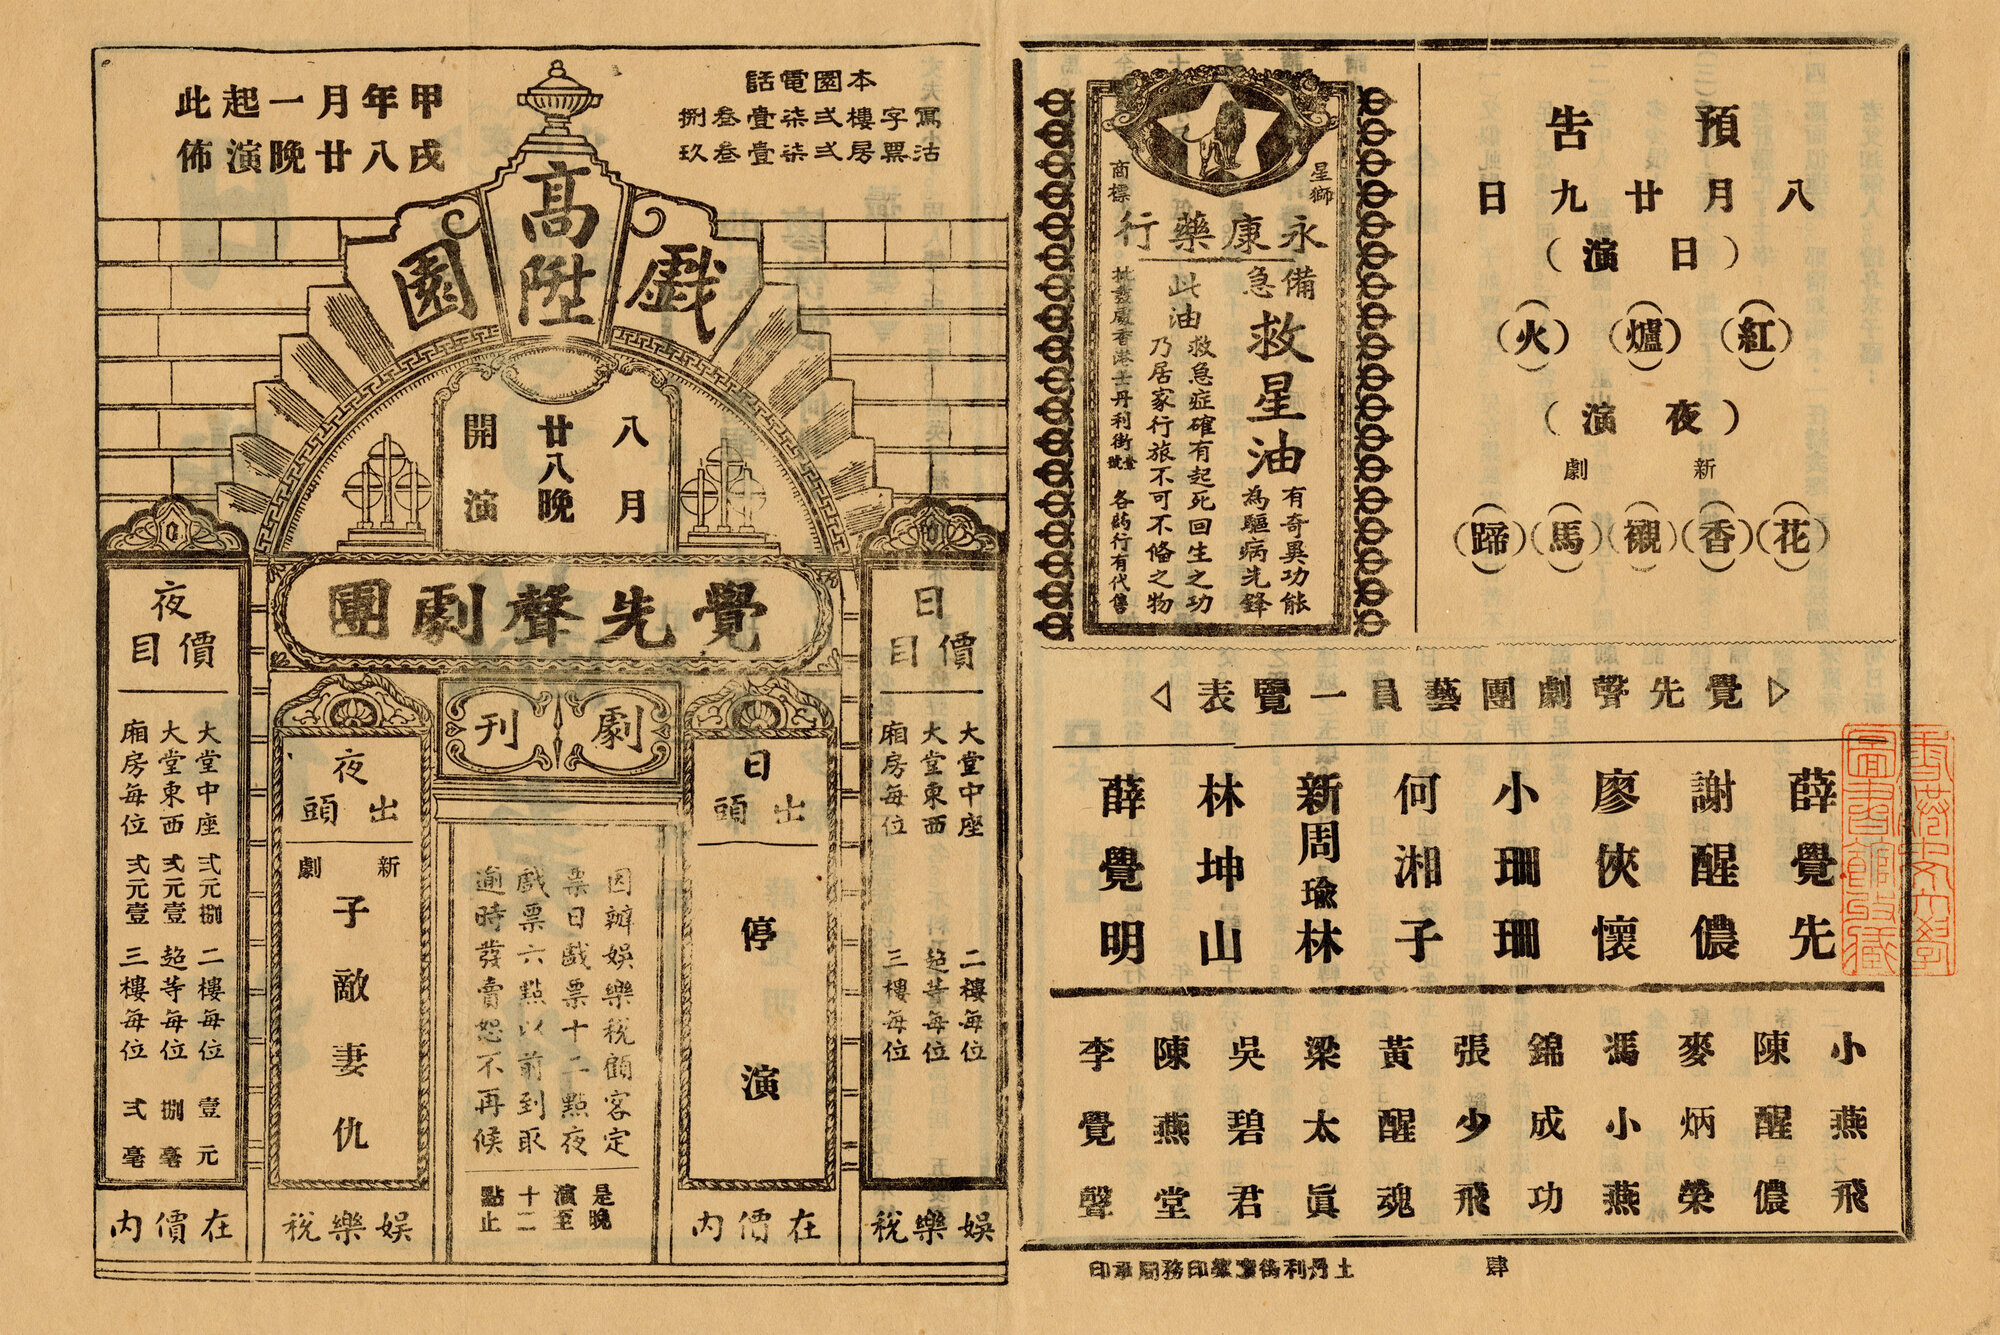 預告
八月廿九日
（日演）
紅爐火
（夜演）
新劇
花香襯馬蹄
星獅
商標
永康藥行
備急
救星油
有奇異功能
為驅病先鋒
此油
救急症確有起死回生之功
乃居家行旅不可不備之物
批發處香港士丹利街壹號
各葯行有代售
覺先聲劇團藝員一覽表
薛覺先
謝醒儂
廖俠懷
小珊珊
何湘子
新周瑜林
林坤山
薛覺明
小燕飛
陳醒儂
麥炳榮
馮小燕
錦成功
張少飛
黃醒魂
梁太眞
吳碧君
陳燕堂
李覺聲
肆
士丹利街
印務局承印
本園電話
寫字樓弍柒壹叁捌
沽票房弍柒壹叁玖
甲戌年八月廿一晚起演此佈
高陞戲園
八月
廿八晚
開演
覺先聲劇團
日價目
大堂中座
大堂東西
廂房每位
二樓每位
超等每位
三樓每位
娛樂稅
在價內
日出頭
停演
劇刊
因辦娛樂稅顧客定
票日戲票十二點夜
戲票六點以前到取
逾時發賣恕不再候
是晚
演至
十二
點止
夜出頭
新劇
子敵妻仇
娛樂稅
在價內
夜價目
大堂中座 弍元捌
大堂東西 弍元壹
廂房每位 弍元壹
二樓每位 壹元
超等每位 捌毫
三樓每位 弍毫